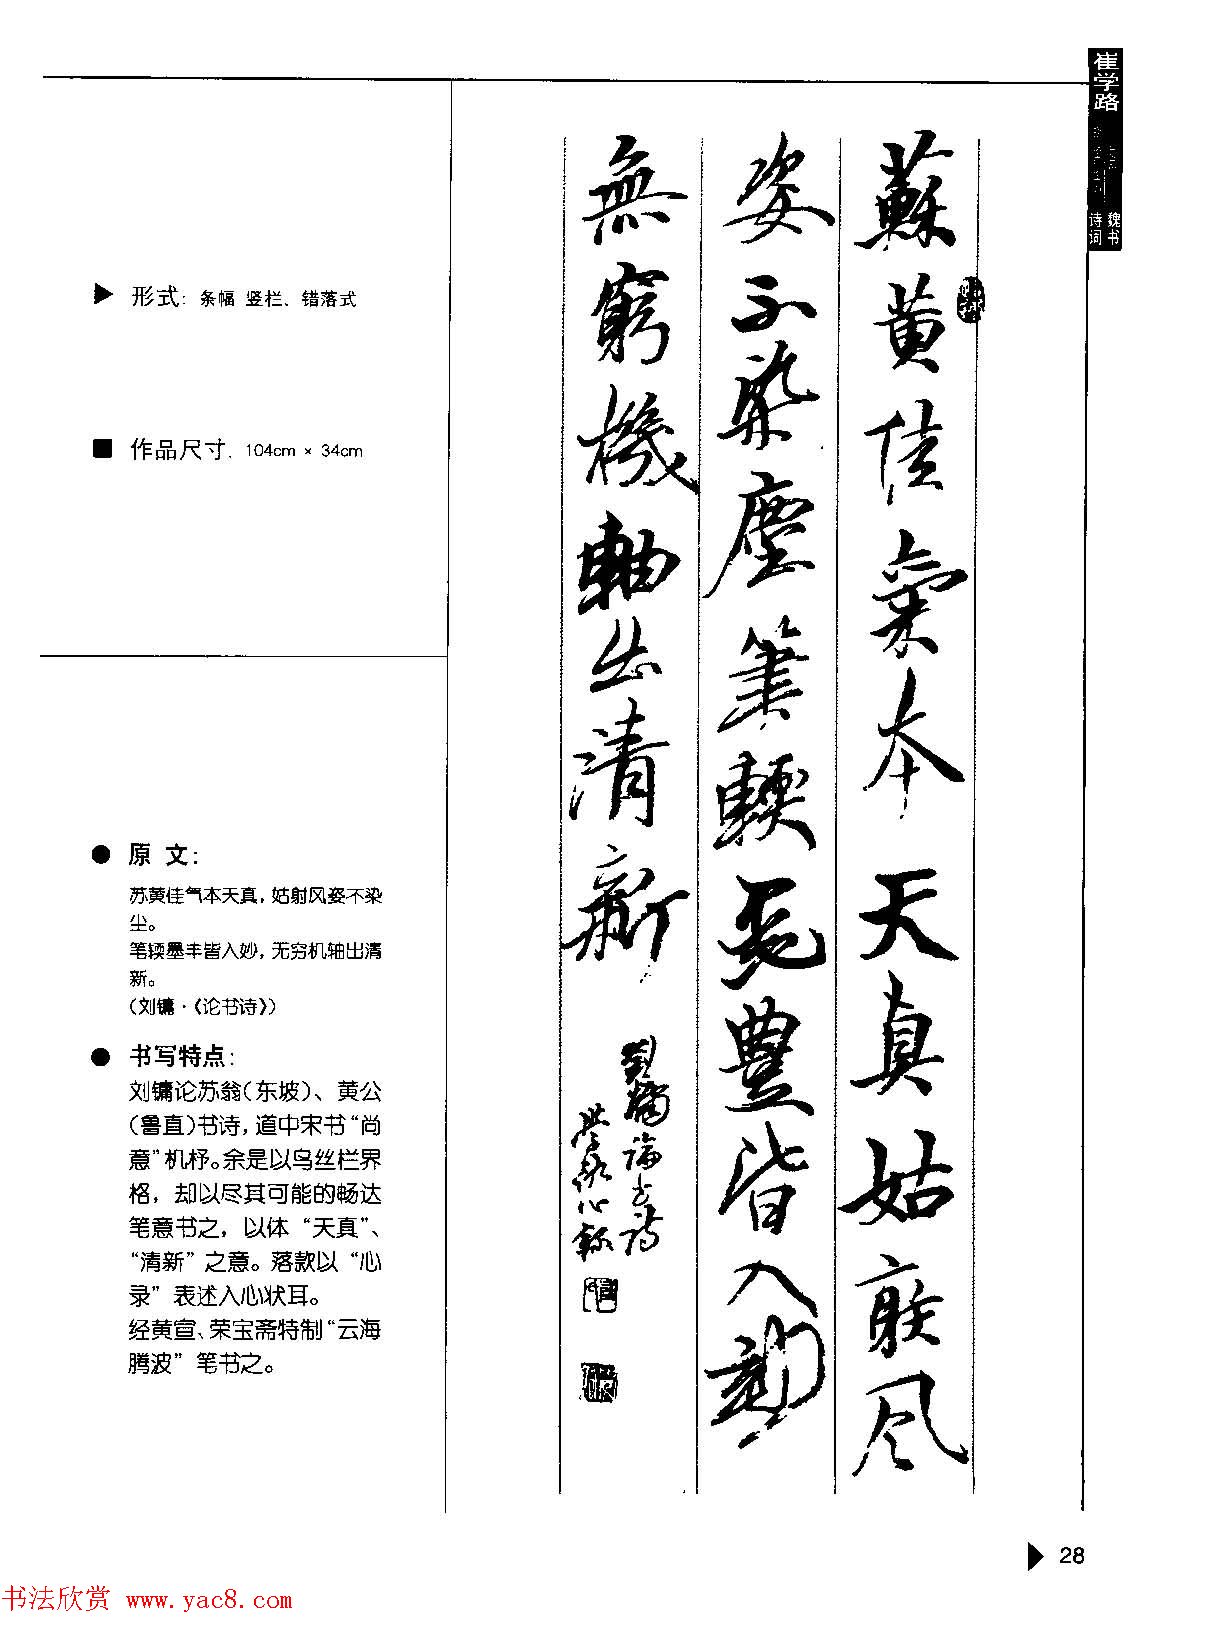 崔学路
魏书
诗词
形式: 条幅 竖栏、错落式
作品尺寸. 104cm × 34cm
原 文:
苏黄佳气本天真, 姑射风姿不染
尘。
笔软墨丰皆入妙, 无穷机轴出清
新。
(刘镛·《论书诗》)
书写特点:
刘镛论苏翁(东坡)、黄公
(鲁直)书诗, 道中宋书“尚
意”机杼。余是以乌丝栏界
格, 却以尽其可能的畅达
笔意书之, 以体 “天真”、
“清新” 之意。落款以 “心
录” 表述入心状耳。
经黄宣、荣宝斋特制“云海
腾波” 笔书之。
蘇黄佳氣本天真姑射风
姿不染塵筆軟墨豐皆入妙
無窮機軸出清新
劉墉論书詩
學路心録
28
书法欣赏 www.yac8.com